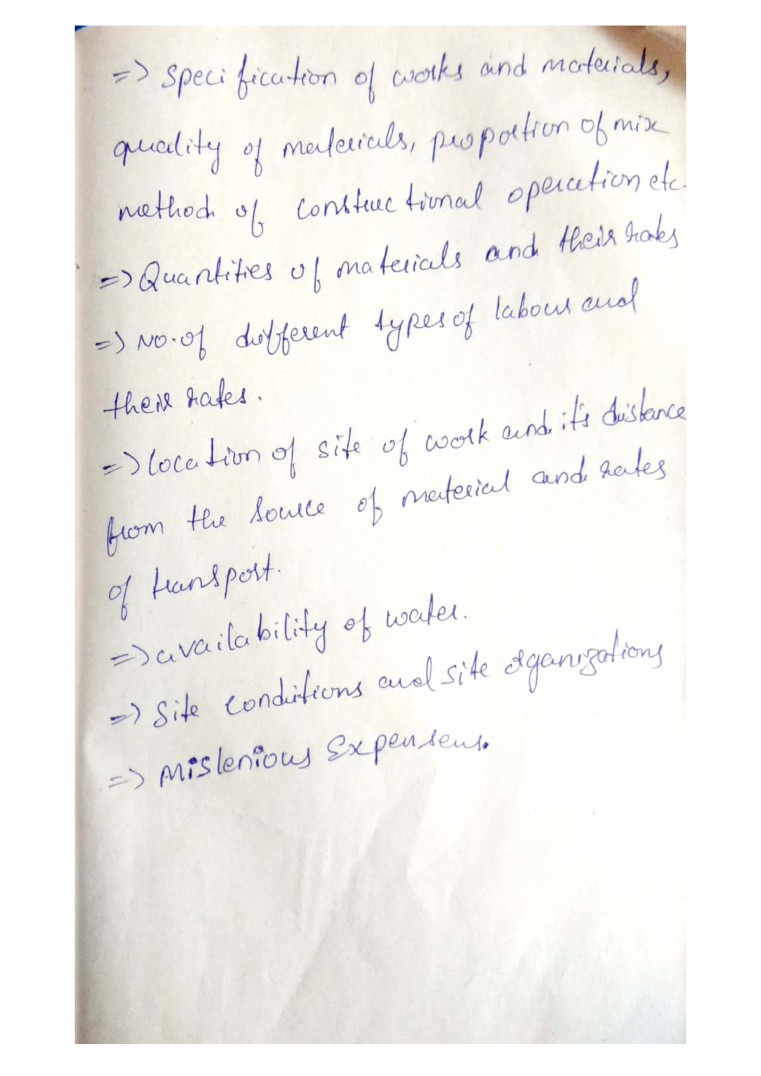 => Specification of works and materials,
quality of materials, proportion of mix
method of constructional operation etc.
=> Quantities of materials and their rates
=> No. of different types of labour and
their rates.
=> location of site of work and it's distance
from the source of material and rates
of transport.
=> availability of water.
=> Site conditions and site organizations
=> Mislenious Expenseus.